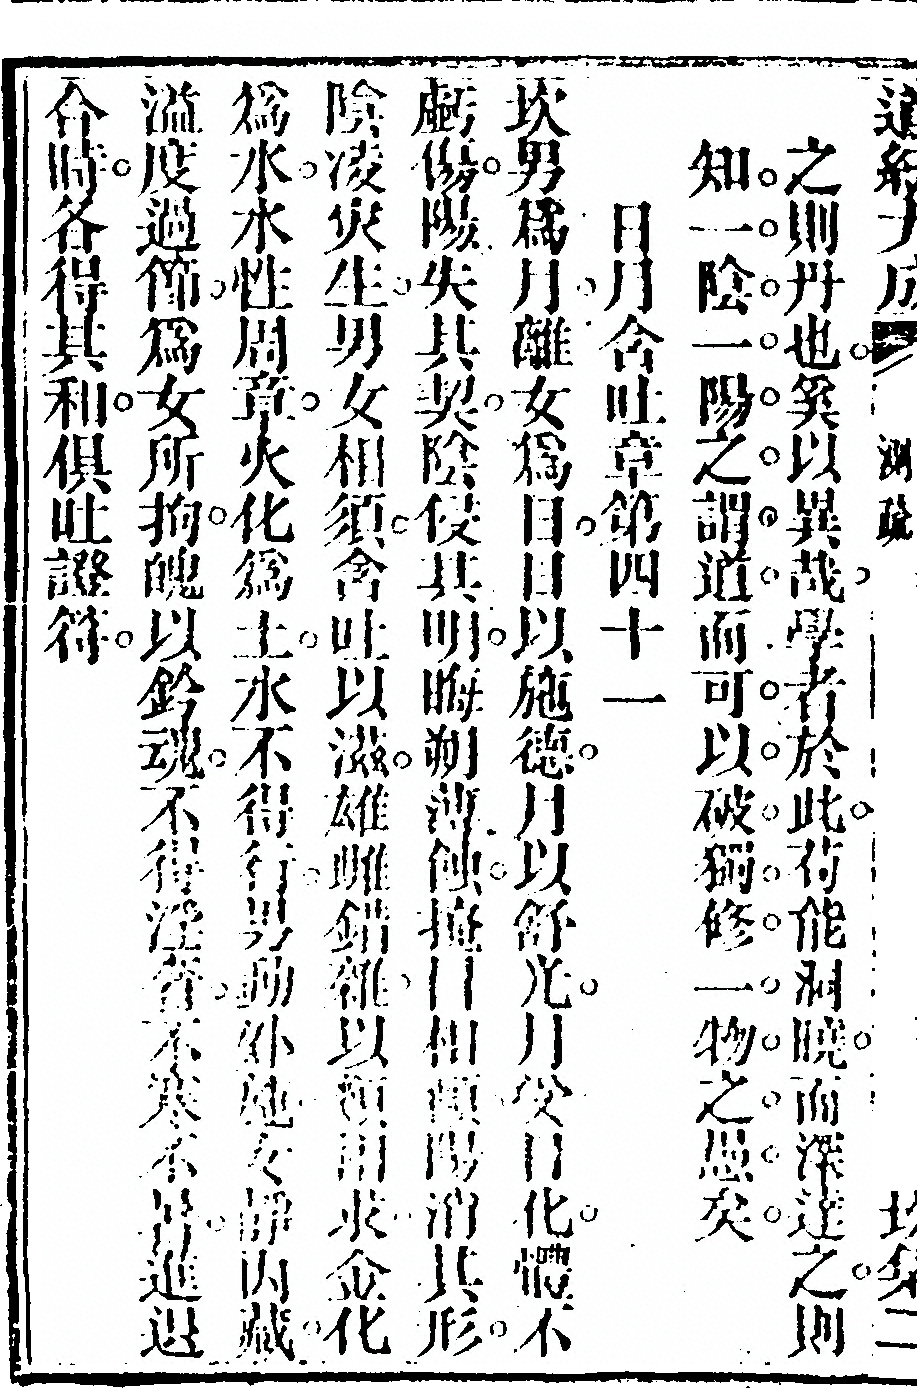 測疏
之則丹也奚以異哉學者於此苟能洞曉而深達之則
知一陰一陽之謂道而可以破獨修一物之愚矣
日月含吐章第四十一
坎男爲月離女爲日日以施德月以舒光月受日化體不
虧傷陽失其契陰侵其明晦朔薄蝕掩日相傾陽消其形
陰凌災生男女相須含吐以滋雄雌錯雜以類相求金化
爲水水性周章火化爲土水不得行男動外施女靜內藏
溢度過節爲女所拘魄以鈐魂不得淫奢不寒不暑進退
合時各得其和俱吐證符